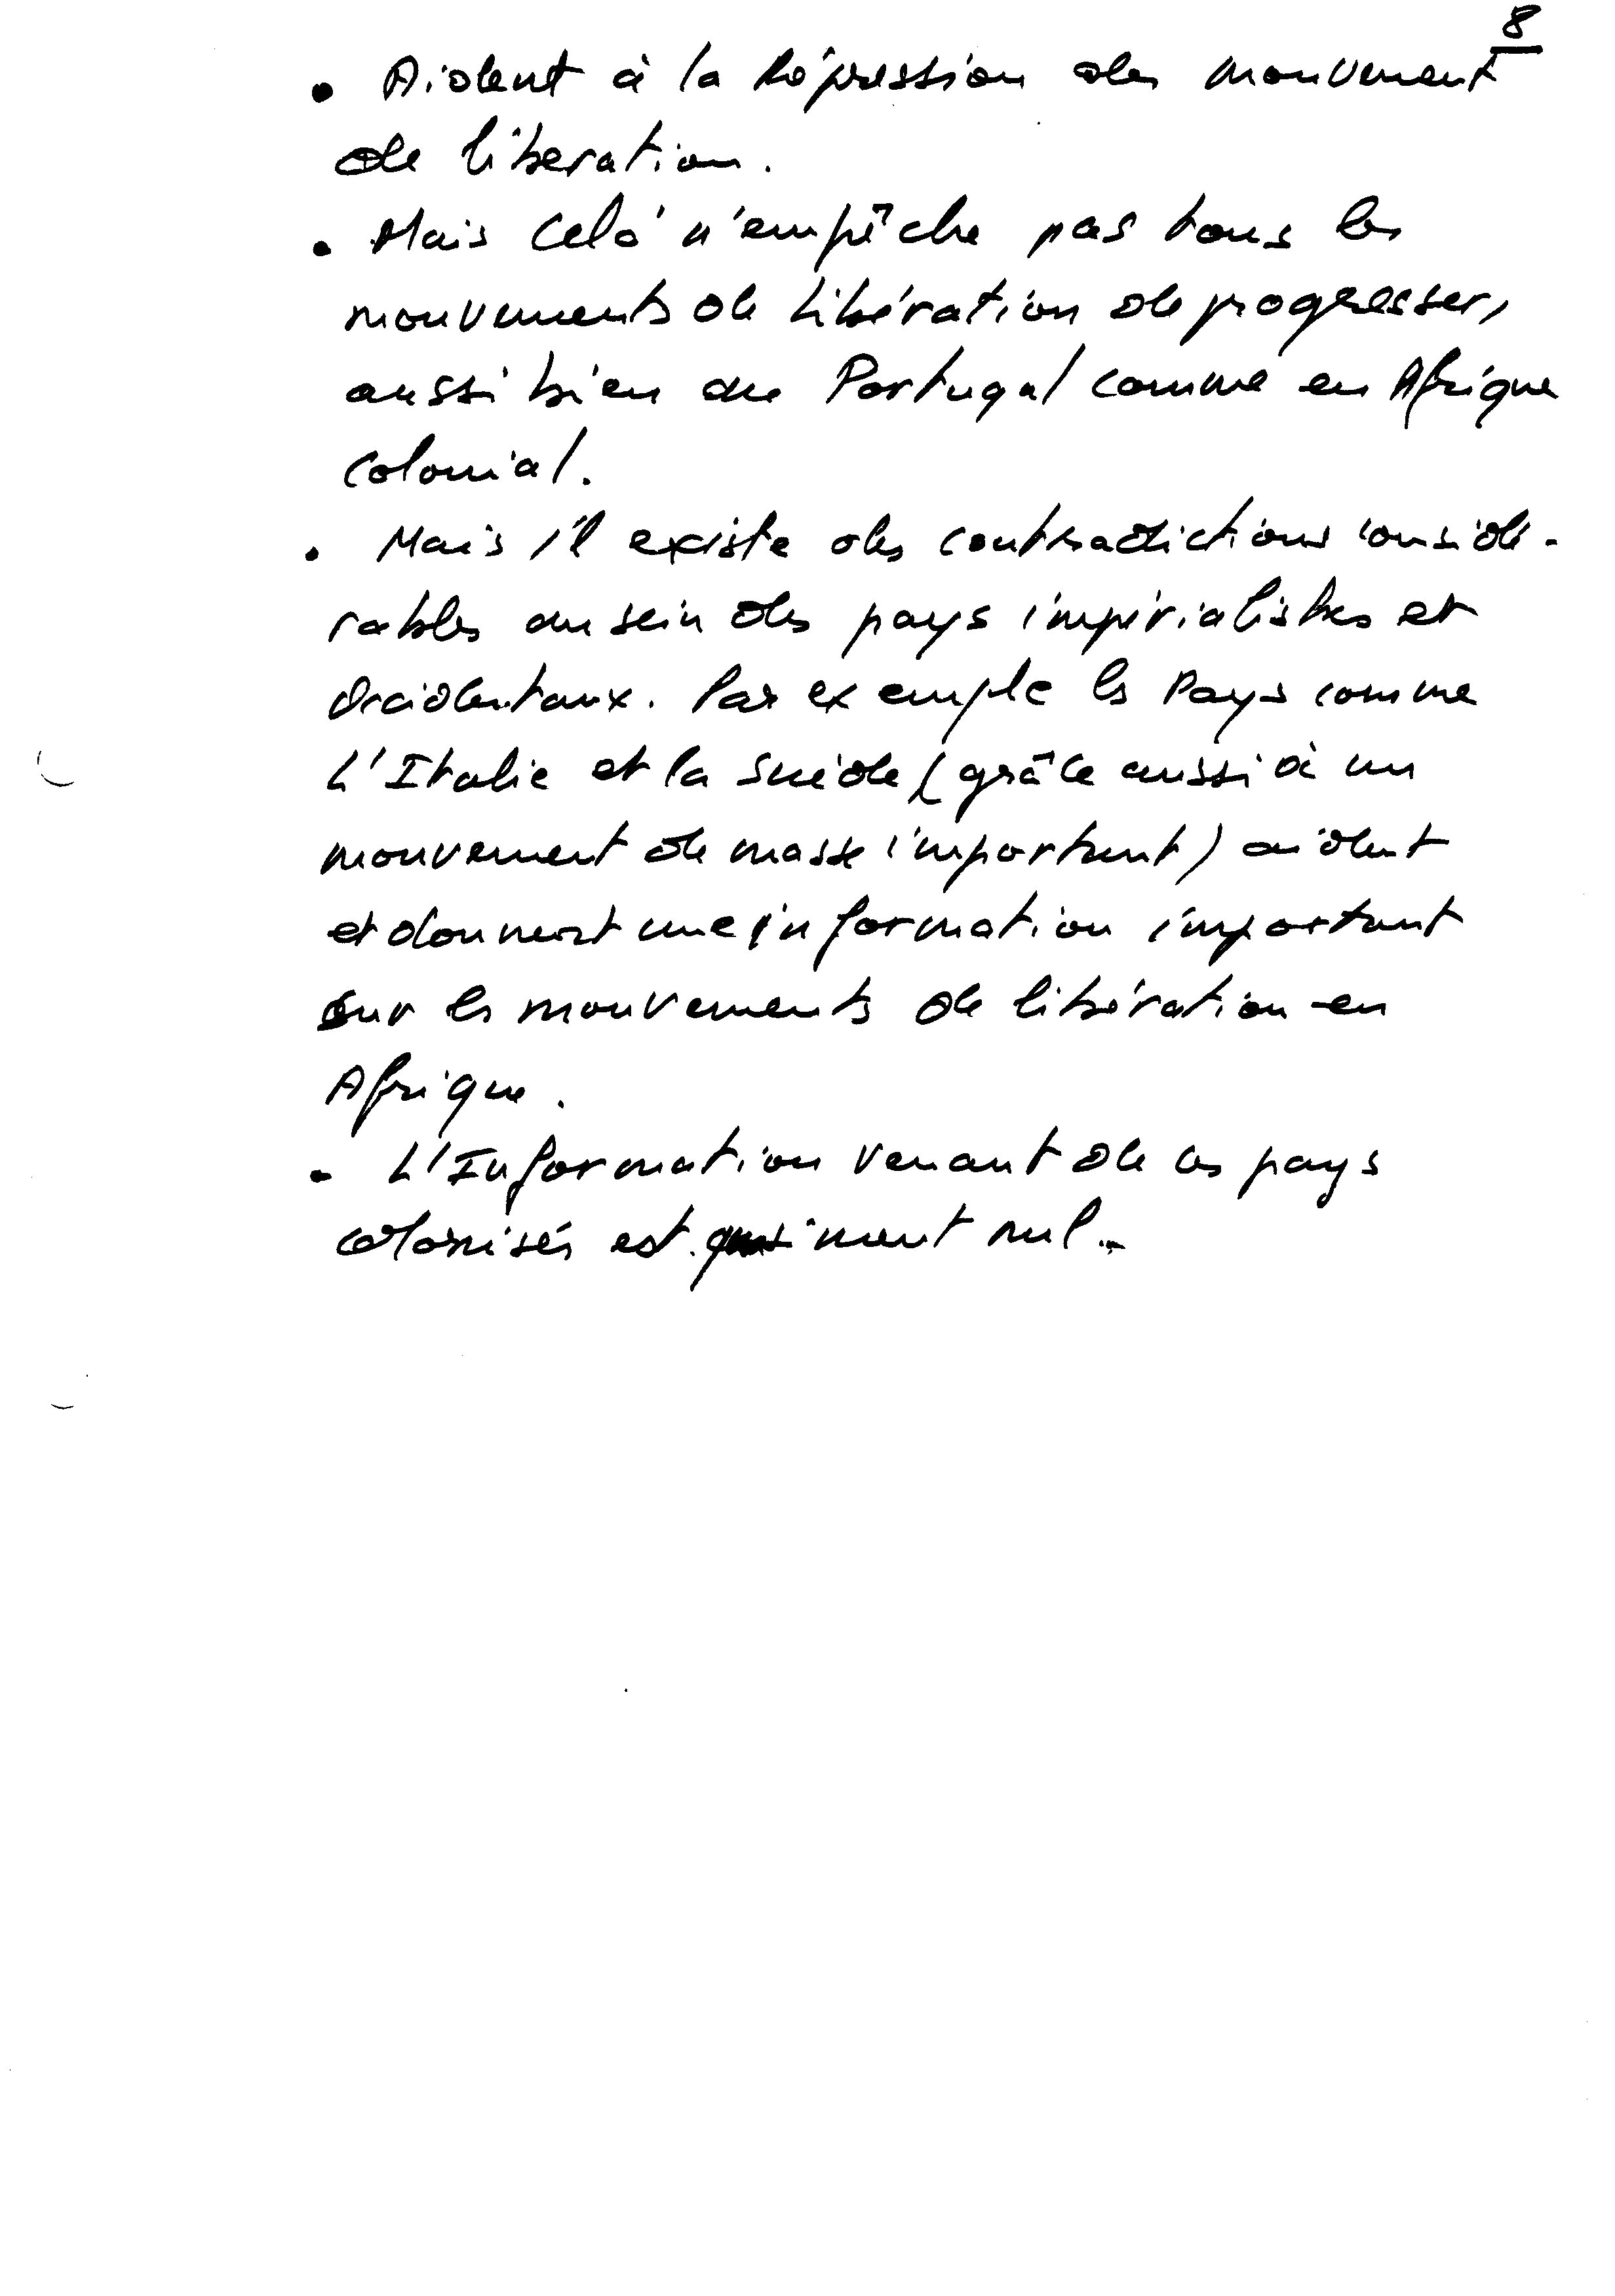 8
• Aident à la Répression des mouvement
de liberation.
• Mais celà n'empêche pas tous les
mouvements de Libération de progresser,
aussi bien au Portugal comme en Afrique
colonial.
• Mais il existe des contradictions considé-
rables au sein des pays impérialistes et
Occidentaux. Par exemple les Pays comme
L'Italie et la Suède (grâce aussi à un
mouvement de masse important) aident
et donnent une information important
sur les mouvements de libération en
Afrique.
• L'Information venant de ces pays
colonisés est quasiment nul.